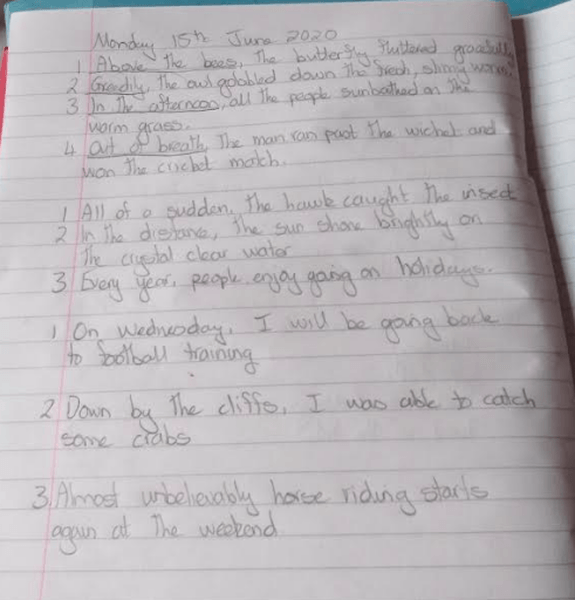 Monday 15th June 2020
1 Above the bees, The butterfly fluttered gracefully
2 Greedily, the owl gobbled down the fresh, slimy worm.
3 In the afternoon, all the people sunbathed on the
warm grass.
4 Out of breath, The man ran past the wicket and
won the cricket match.
1 All of a sudden, the hawk caught the insect
2 In the distance, the sun shone brightly on
the crystal clear water
3 Every year, people enjoy going on holidays.
1 On Wednesday, I will be going back
to football training
2 Down by the cliffs, I was able to catch
some crabs
3 Almost unbelievably horse riding starts
again at the weekend